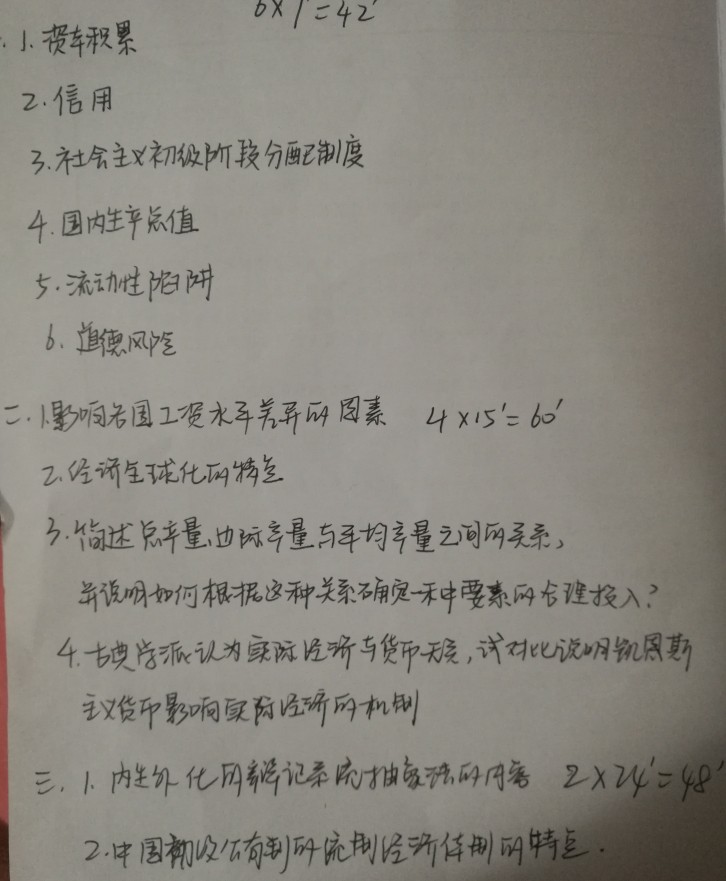 6×7'=42'
1. 资本积累
2. 信用
3. 社会主义初级阶段分配制度
4. 国内生产总值
5. 流动性陷阱
6. 道德风险
二. 1. 影响各国工资水平差异的因素 4×15'=60'
2. 经济全球化的特点
3. 简述总产量、边际产量与平均产量之间的关系,
并说明如何根据这种关系确定一种要素的合理投入?
4. 古典学派认为实际经济与货币无关,试对比说明凯恩斯
主义货币影响实际经济的机制
三. 1. 内 化 的 抽象法的内容 2×24'=48'
2. 中国 公有制的 经济体制的特点.